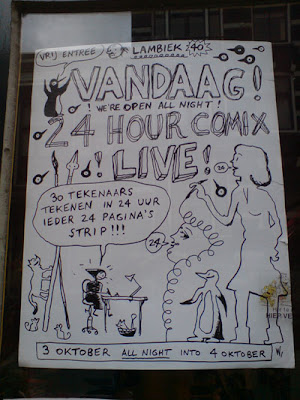 VRIJ ENTREE
LAMBIEK 40
VANDAAG!
! WE'RE OPEN ALL NIGHT !
24 HOUR COMIX
! LIVE !
24
30 TEKENAARS
TEKENEN IN 24 UUR
IEDER 24 PAGINA'S
STRIP !!!
24
3 OKTOBER ALL NIGHT INTO 4 OKTOBER